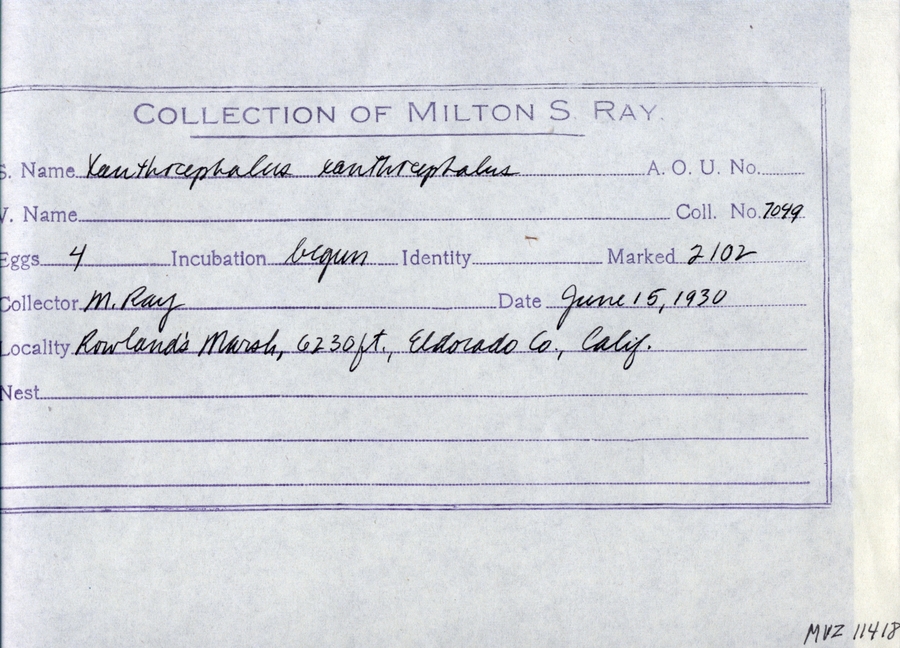 COLLECTION OF MILTON S. RAY.
S. Name Xanthocephalus xanthocephalus A. O. U. No.
V. Name Coll. No. 7049
Eggs 4 Incubation begun Identity Marked 2102
Collector M. Ray Date June 15, 1930
Locality Rowland's Marsh, 6230 ft., Eldorado Co., Calif.
Nest
MVZ 11418